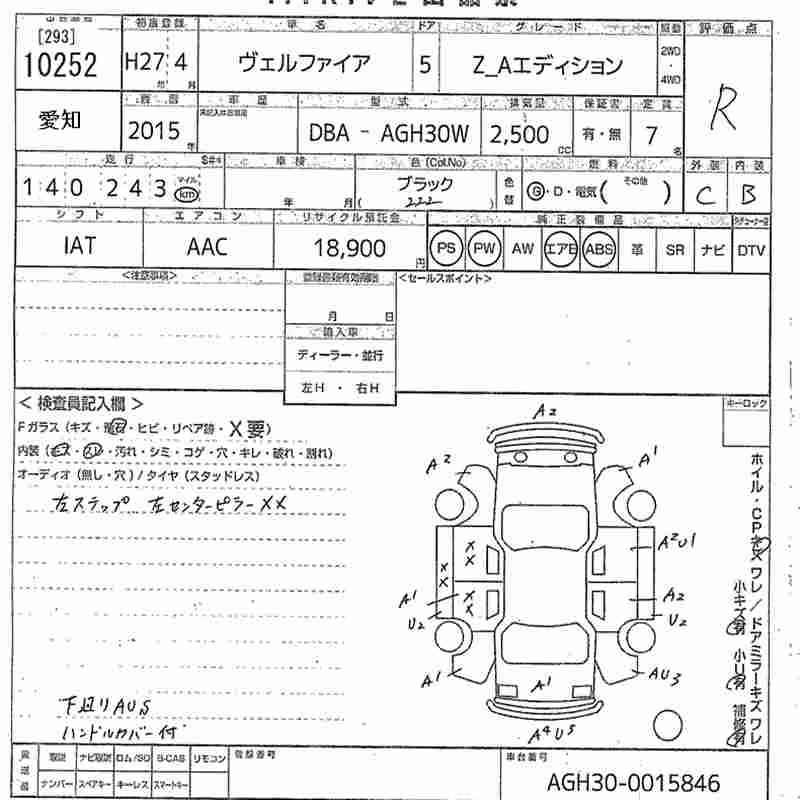 [293]
10252
初度登録
H27 4
年 月
車名
ヴェルファイア
ドア
5
グレード
Z_Aエディション
駆動
2WD
・
4WD
評価点
R
愛知
2015
年
車歴
型式
DBA - AGH30W
排気量
2,500
cc
保証書
有・無
定員
7
名
走行
140243
マイル
km
車検
年 月
色 (Col.No)
ブラック
( 222 )
色替
燃料
G・D・電気( その他 )
外装
C
内装
B
シフト
IAT
エアコン
AAC
リサイクル預託金
18,900
円
純正装備品
PS PW AW エアB ABS 革 SR ナビ DTV
<注意事項>
月 日
輸入車
ディーラー・並行
左H ・ 右H
<セールスポイント>
<検査員記入欄>
Fガラス(キズ・ ・ヒビ・リペア跡・X要)
内装( ・ ・汚れ・シミ・コゲ・穴・キレ・破れ・割れ)
オーディオ(無し・穴)/タイヤ(スタッドレス)
左ステップ 左センターピラーXX
下廻りAUS
ハンドルカバー付
キーロック
A2
A2
A1
X
X
X
X
A2U1
A1
U2
X
X
A2
U2
A1
A1
AU3
A4U5
ホイル・CPキズXワレ/ドアミラーキズワレ
小キズ有 小U有 補修有
取説 ナビ取説 ロム/SD B-CAS リモコン
ナンバー スペアキー キーレス スマートキー
登録番号
車台番号
AGH30-0015846